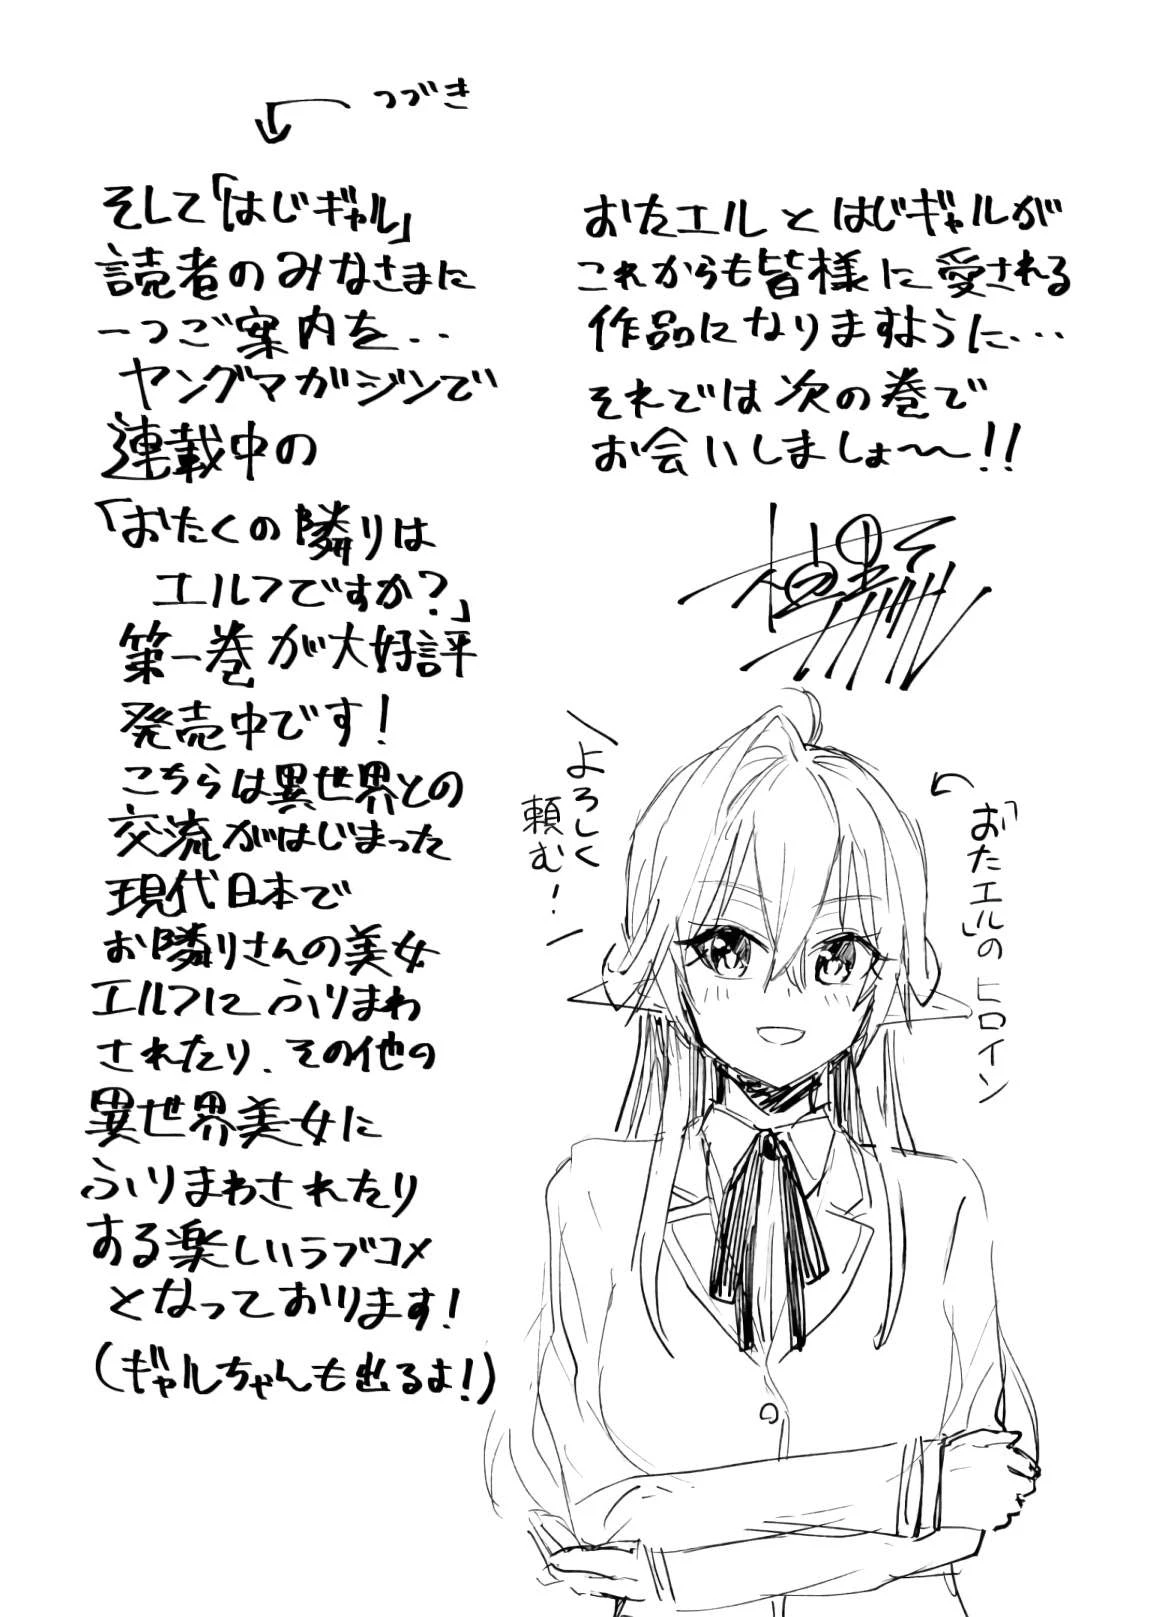 つづき
そして「はじギャル」
読者のみなさまに
一つご案内を・・
ヤングマガジンで
連載中の
「おたくの隣りは
エルフですか？」
第一巻が大好評
発売中です！
こちらは異世界との
交流がはじまった
現代日本で
お隣りさんの美女
エルフにふりまわ
されたり、その他の
異世界美女に
ふりまわされたり
する楽しいラブコメ
となっております！
（ギャルちゃんも出るよ！）
おたエルとはじギャルが
これからも皆様に愛される
作品になりますように・・・
それでは次の巻で
お会いしましょ〜〜！！
よろしく
頼む！
「おたエル」のヒロイン